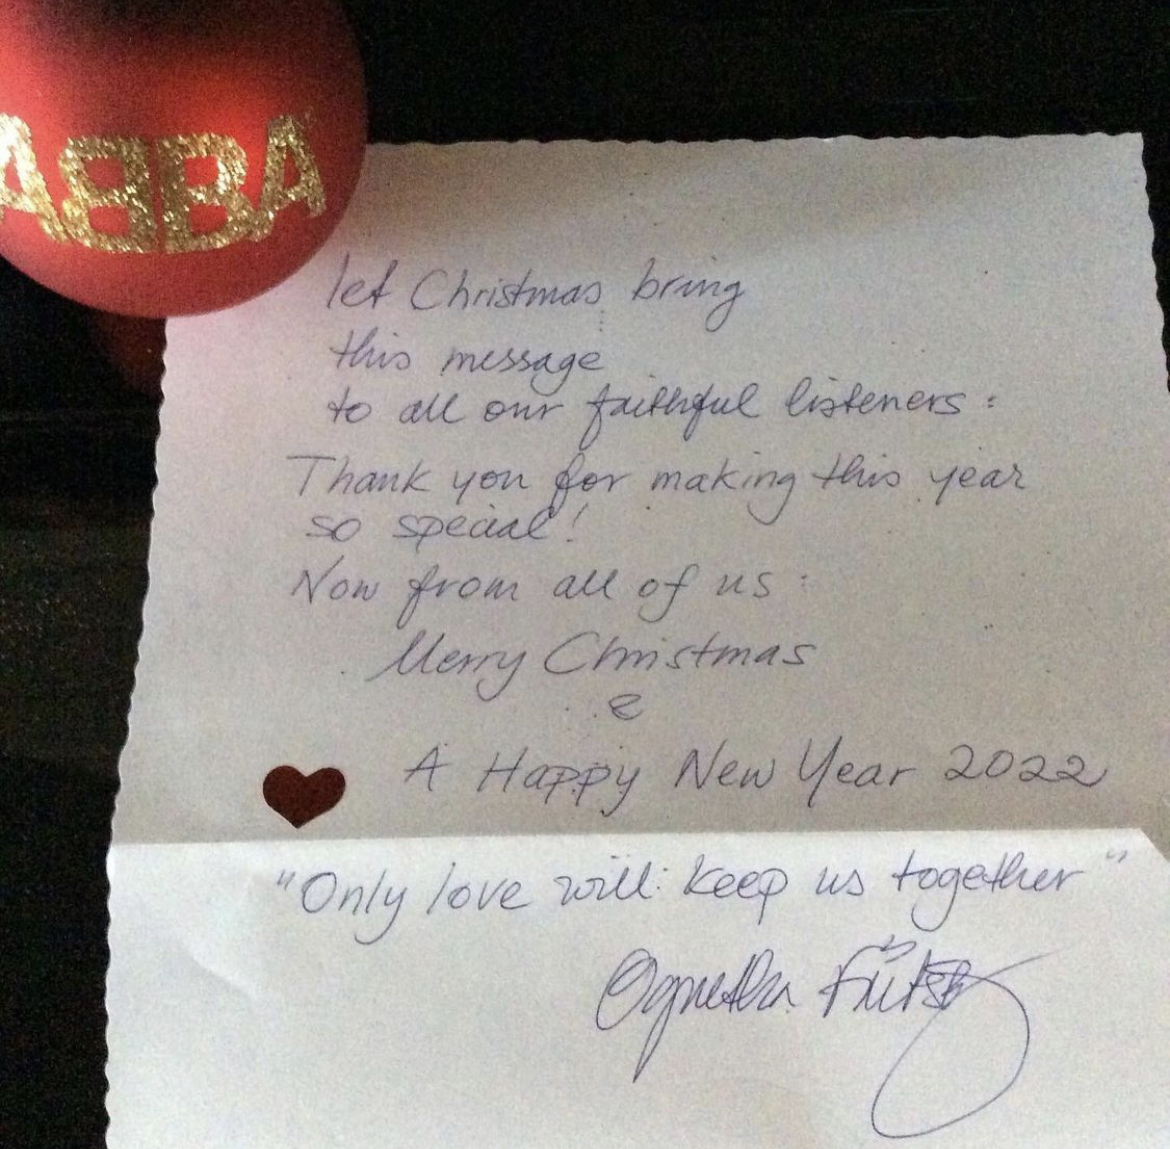 ABBA
let Christmas bring
this message
to all our faithful listeners:
Thank you for making this year
so special!
Now from all of us:
Merry Christmas
&
A Happy New Year 2022
"Only love will keep us together"
Agnetha Fältsk